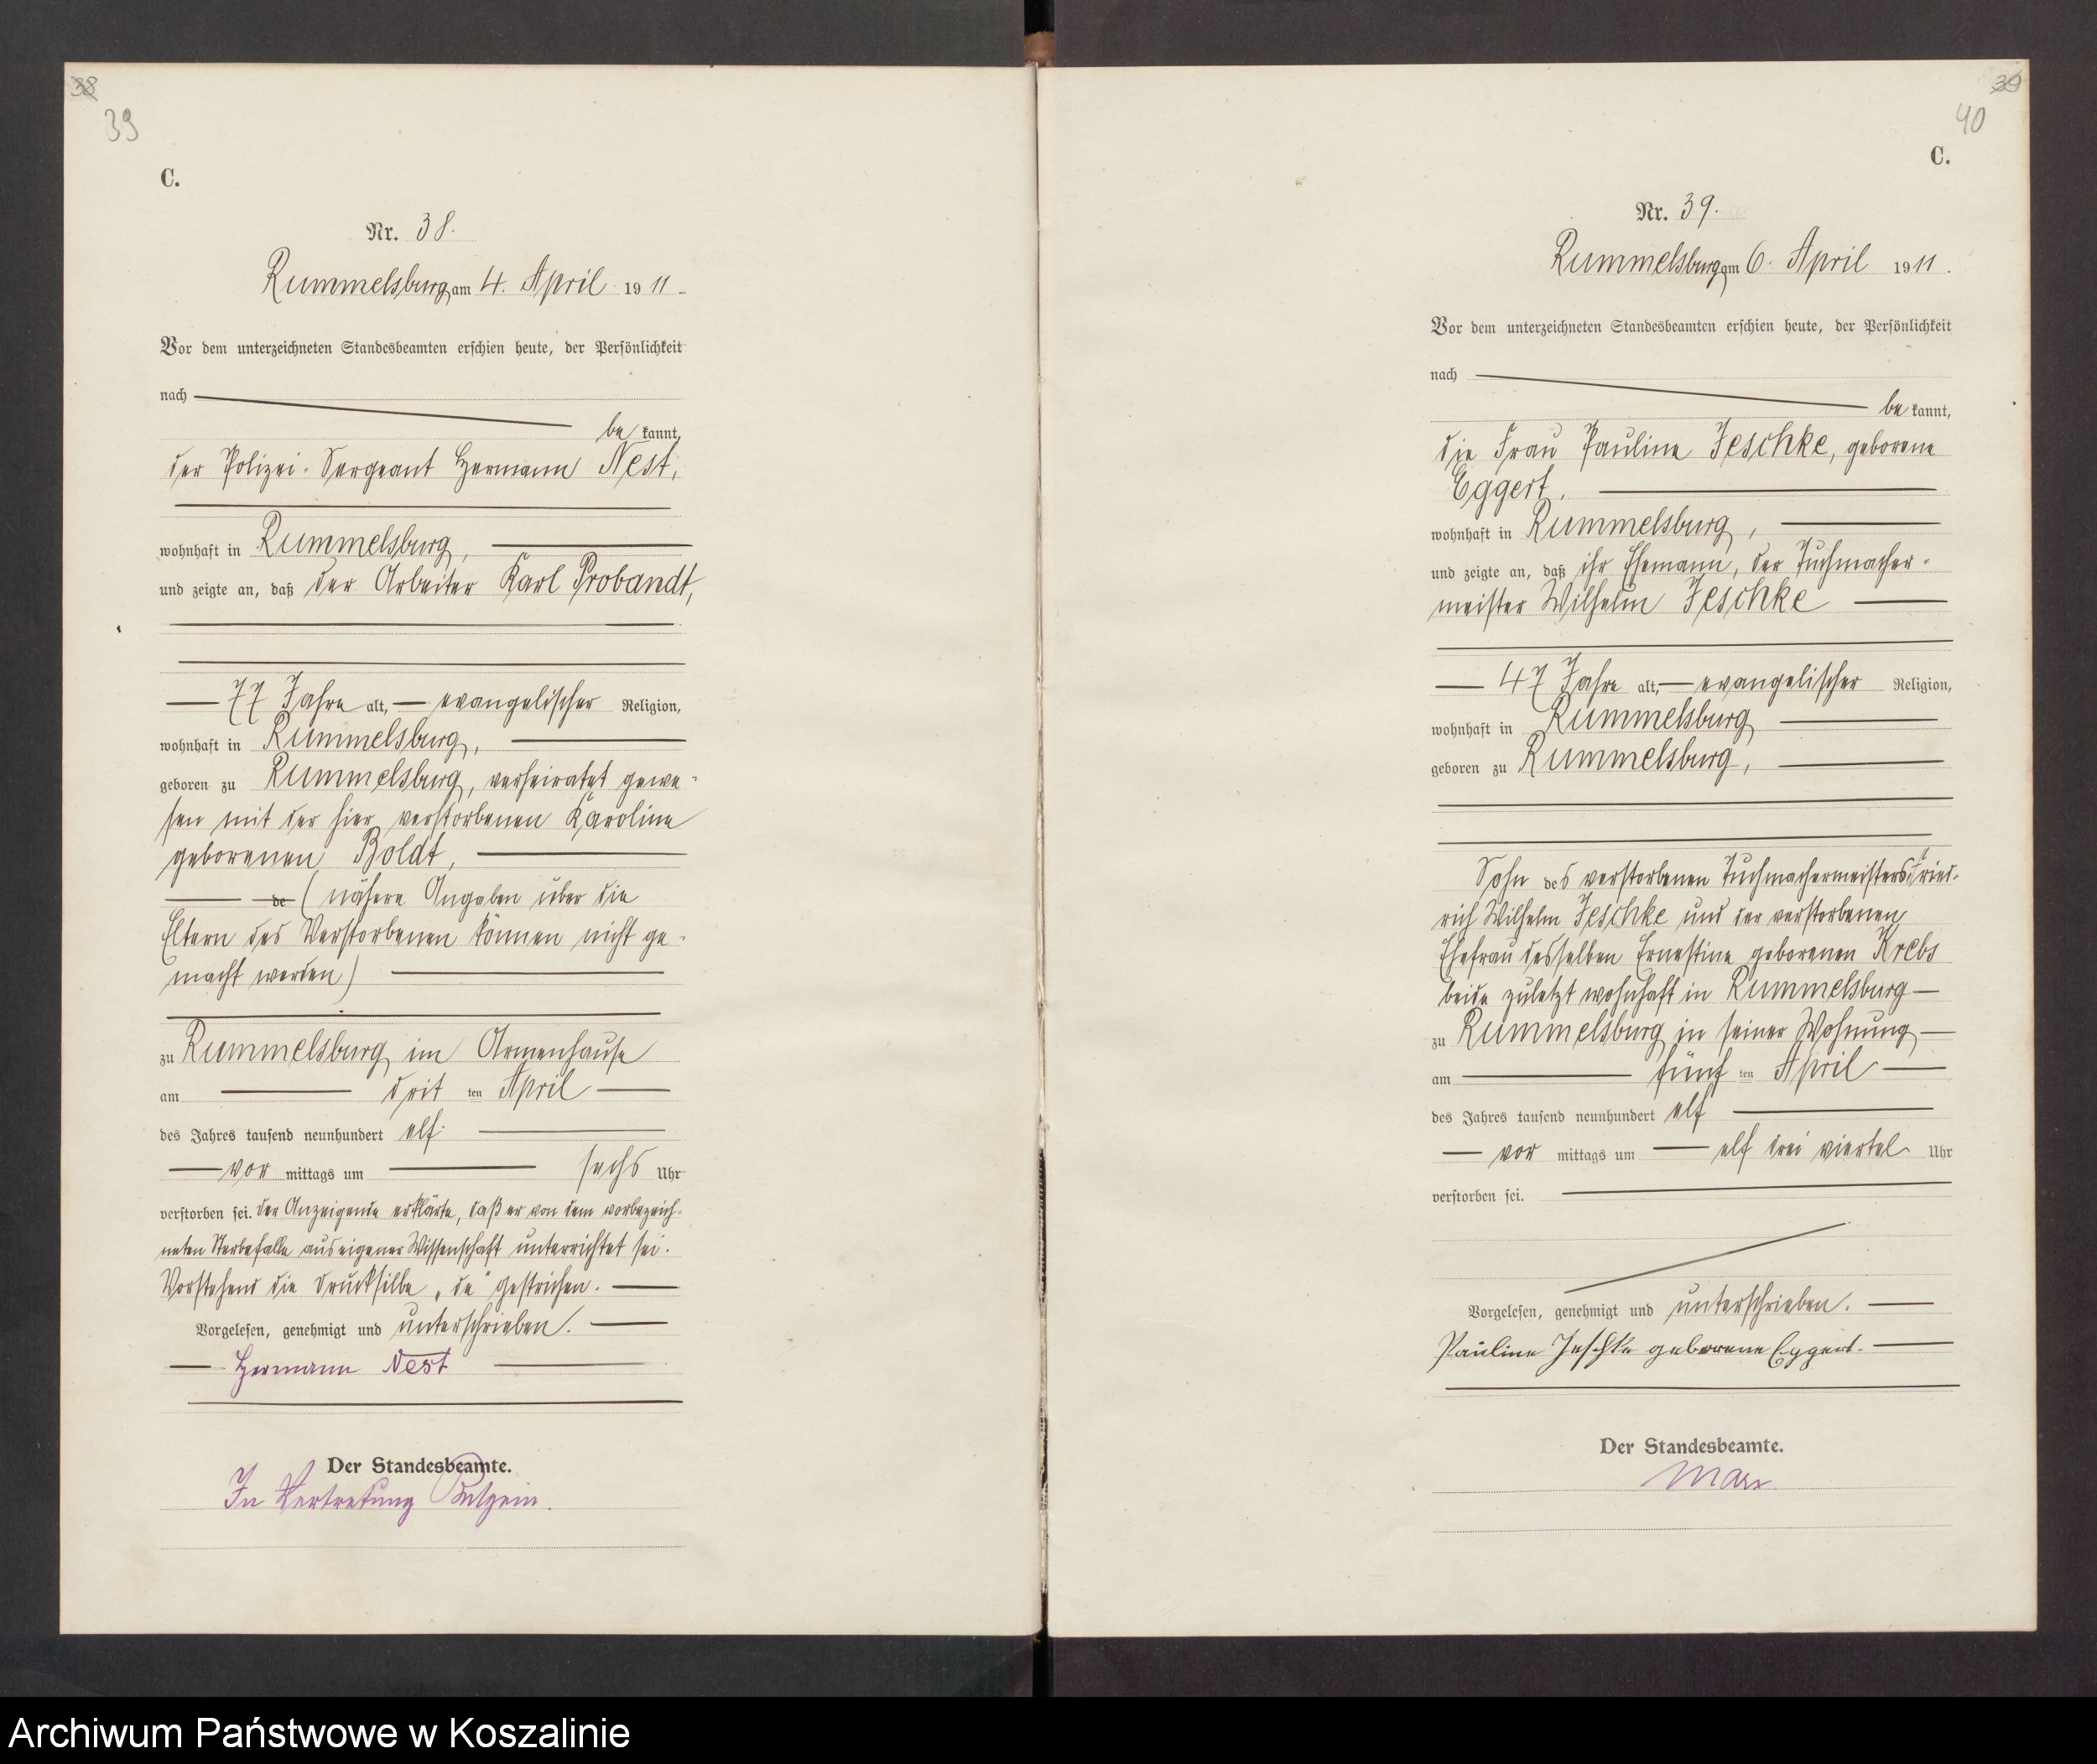 38
39
C.
Nr. 38.
Rummelsburg am 4. April 1911
Vor dem unterzeichneten Standesbeamten erschien heute, der Persönlichkeit
nach
be kannt,
der Polizei-Sergeant Hermann Nest,
wohnhaft in Rummelsburg,
und zeigte an, daß der Arbeiter Karl Probandt,
77 Jahre alt, evangelischer Religion,
wohnhaft in Rummelsburg,
geboren zu Rummelsburg, verheiratet gewe-
sen mit der hier verstorbenen Karoline
geborenen Boldt,
de (nähere Angaben über die
Eltern des Verstorbenen können nicht ge-
macht werden)
zu Rummelsburg im Armenhause
am drit ten April
des Jahres tausend neunhundert elf
vor mittags um sechs Uhr
verstorben sei. Der Anzeigende erklärte, daß er von dem vorbezeich-
neten Sterbefalle aus eigener Wissenschaft unterrichtet sei.
Vorstehend die Drucksilbe „de“ gestrichen.
Vorgelesen, genehmigt und unterschrieben.
Hermann Nest
Der Standesbeamte.
In Vertretung
39
40
C.
Nr. 39.
Rummelsburg am 6. April 1911.
Vor dem unterzeichneten Standesbeamten erschien heute, der Persönlichkeit
nach
be kannt,
die Frau Pauline Jeschke, geborene
Eggert,
wohnhaft in Rummelsburg,
und zeigte an, daß ihr Ehemann, der Tuchmacher-
meister Wilhelm Jeschke
47 Jahre alt, evangelischer Religion,
wohnhaft in Rummelsburg
geboren zu Rummelsburg,
Sohn des verstorbenen Tuchmachermeisters Fried-
rich Wilhelm Jeschke und der verstorbenen
Ehefrau desselben Ernestine geborenen Krebs
beide zuletzt wohnhaft in Rummelsburg
zu Rummelsburg in seiner Wohnung
am fünf ten April
des Jahres tausend neunhundert elf
vor mittags um elf drei viertel Uhr
verstorben sei.
Vorgelesen, genehmigt und unterschrieben.
Pauline Jeschke geborene Eggert.
Der Standesbeamte.
Marx
Archiwum Państwowe w Koszalinie